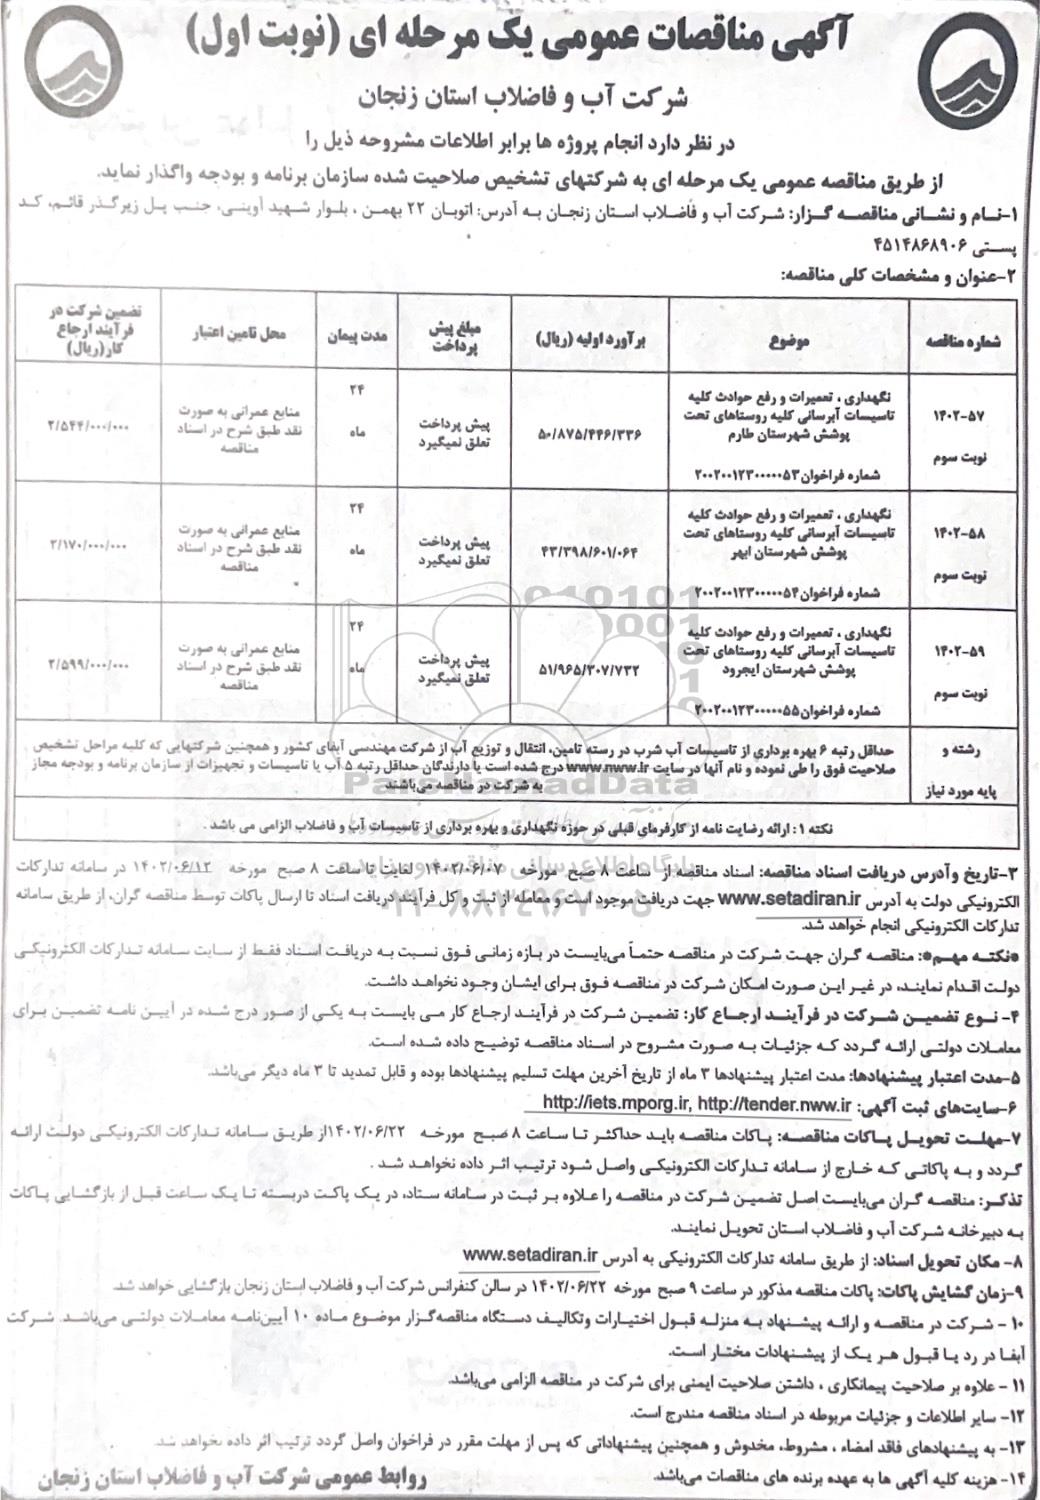 آگهی مناقصات عمومی یک مرحله ای (نوبت اول)
شرکت آب و فاضلاب استان زنجان
در نظر دارد انجام پروژه ها برابر اطلاعات مشروحه ذیل را
از طریق مناقصه عمومی یک مرحله ای به شرکتهای تشخیص صلاحیت شده سازمان برنامه و بودجه واگذار نماید.
۱-نام و نشانی مناقصه گزار: شرکت آب و فاضلاب استان زنجان به آدرس: اتوبان ۲۲ بهمن ، بلوار شهید آوینی، جنب پل زیرگذر قائم، کد
پستی ۴۵۱۴۸۶۸۹۰۶
۲-عنوان و مشخصات کلی مناقصه:
شماره مناقصه
موضوع
برآورد اولیه (ریال)
مبلغ پیش
پرداخت
مدت پیمان
محل تامین اعتبار
تضمین شرکت در
فرآیند ارجاع
کار(ریال)
۱۴۰۲-۵۷
نوبت سوم
نگهداری ، تعمیرات و رفع حوادث کلیه
تاسیسات آبرسانی کلیه روستاهای تحت
پوشش شهرستان طارم
شماره فراخوان۲۰۰۲۰۰۱۲۳۰۰۰۰۰۵۳
۵۰/۸۷۵/۴۴۶/۳۳۶
پیش پرداخت
تعلق نمیگیرد
۲۴
ماه
منابع عمرانی به صورت
نقد طبق شرح در اسناد
مناقصه
۲/۵۴۴/۰۰۰/۰۰۰
۱۴۰۲-۵۸
نوبت سوم
نگهداری ، تعمیرات و رفع حوادث کلیه
تاسیسات آبرسانی کلیه روستاهای تحت
پوشش شهرستان ابهر
شماره فراخوان۲۰۰۲۰۰۱۲۳۰۰۰۰۰۵۴
۴۳/۳۹۸/۶۰۱/۰۶۴
پیش پرداخت
تعلق نمیگیرد
۲۴
ماه
منابع عمرانی به صورت
نقد طبق شرح در اسناد
مناقصه
۲/۱۷۰/۰۰۰/۰۰۰
۱۴۰۲-۵۹
نوبت سوم
نگهداری ، تعمیرات و رفع حوادث کلیه
تاسیسات آبرسانی کلیه روستاهای تحت
پوشش شهرستان ایجرود
شماره فراخوان۲۰۰۲۰۰۱۲۳۰۰۰۰۰۵۵
۵۱/۹۶۵/۳۰۷/۷۳۲
پیش پرداخت
تعلق نمیگیرد
۲۴
ماه
منابع عمرانی به صورت
نقد طبق شرح در اسناد
مناقصه
۲/۵۹۹/۰۰۰/۰۰۰
رشته و
پایه مورد نیاز
حداقل رتبه ۶ بهره برداری از تاسیسات آب شرب در رسته تامین، انتقال و توزیع آب از شرکت مهندسی آبفای کشور و همچنین شرکتهایی که کلیه مراحل تشخیص
صلاحیت فوق را طی نموده و نام آنها در سایت www.nww.ir درج شده است یا دارندگان حداقل رتبه ۵ آب یا تاسیسات و تجهیزات از سازمان برنامه و بودجه مجاز
به شرکت در مناقصه می‌باشند
نکته ۱: ارائه رضایت نامه از کارفرمای قبلی در حوزه نگهداری و بهره برداری از تاسیسات آب و فاضلاب الزامی می باشد .
ParsNamadData
پایگاه اطلاع رسانی مناقصه و مزایده
۰۲۱-۸۸۳۴۹۶۷۰-۵
۳-تاریخ وآدرس دریافت اسناد مناقصه: اسناد مناقصه از ساعت ۸ صبح مورخه ۱۴۰۲/۰۶/۰۷ لغایت تا ساعت ۸ صبح مورخه ۱۴۰۲/۰۶/۱۲ در سامانه تدارکات
الکترونیکی دولت به آدرس www.setadiran.ir جهت دریافت موجود است و معامله از ثبت و کل فرآیند دریافت اسناد تا ارسال پاکات توسط مناقصه گران، از طریق سامانه
تدارکات الکترونیکی انجام خواهد شد.
*نکته مهم*: مناقصه گران جهت شرکت در مناقصه حتماً می‌بایست در بازه زمانی فوق نسبت به دریافت اسناد فقط از سایت سامانه تدارکات الکترونیکی
دولت اقدام نمایند، در غیر این صورت امکان شرکت در مناقصه فوق برای ایشان وجود نخواهد داشت.
۴- نوع تضمین شرکت در فرآیند ارجاع کار: تضمین شرکت در فرآیند ارجاع کار می بایست به یکی از صور درج شده در آیین نامه تضمین برای
معاملات دولتی ارائه گردد که جزئیات به صورت مشروح در اسناد مناقصه توضیح داده شده است.
۵-مدت اعتبار پیشنهادها: مدت اعتبار پیشنهادها ۳ ماه از تاریخ آخرین مهلت تسلیم پیشنهادها بوده و قابل تمدید تا ۳ ماه دیگر می‌باشد.
۶-سایت‌های ثبت آگهی: http://iets.mporg.ir, http://tender.nww.ir
۷-مهلت تحویل پاکات مناقصه: پاکات مناقصه باید حداکثر تا ساعت ۸ صبح مورخه ۱۴۰۲/۰۶/۲۲از طریق سامانه تدارکات الکترونیکی دولت ارائه
گردد و به پاکاتی که خارج از سامانه تدارکات الکترونیکی واصل شود ترتیب اثر داده نخواهد شد .
تذکر: مناقصه گران می‌بایست اصل تضمین شرکت در مناقصه را علاوه بر ثبت در سامانه ستاد، در یک پاکت دربسته تا یک ساعت قبل از بازگشایی پاکات
به دبیرخانه شرکت آب و فاضلاب استان تحویل نمایند.
۸- مکان تحویل اسناد: از طریق سامانه تدارکات الکترونیکی به آدرس www.setadiran.ir
۹-زمان گشایش پاکات: پاکات مناقصه مذکور در ساعت ۹ صبح مورخه ۱۴۰۲/۰۶/۲۲ در سالن کنفرانس شرکت آب و فاضلاب استان زنجان بازگشایی خواهد شد.
۱۰ - شرکت در مناقصه و ارائه پیشنهاد به منزله قبول اختیارات وتکالیف دستگاه مناقصه‌گزار موضوع ماده ۱۰ آیین‌نامه معاملات دولتی می‌باشد. شرکت
آبفا در رد یا قبول هر یک از پیشنهادات مختار است.
۱۱ - علاوه بر صلاحیت پیمانکاری ، داشتن صلاحیت ایمنی برای شرکت در مناقصه الزامی می‌باشد.
۱۲- سایر اطلاعات و جزئیات مربوطه در اسناد مناقصه مندرج است.
۱۳- به پیشنهادهای فاقد امضاء ، مشروط، مخدوش و همچنین پیشنهاداتی که پس از مهلت مقرر در فراخوان واصل گردد ترتیب اثر داده نخواهد شد.
۱۴- هزینه کلیه آگهی ها به عهده برنده های مناقصات می‌باشد.
روابط عمومی شرکت آب و فاضلاب استان زنجان